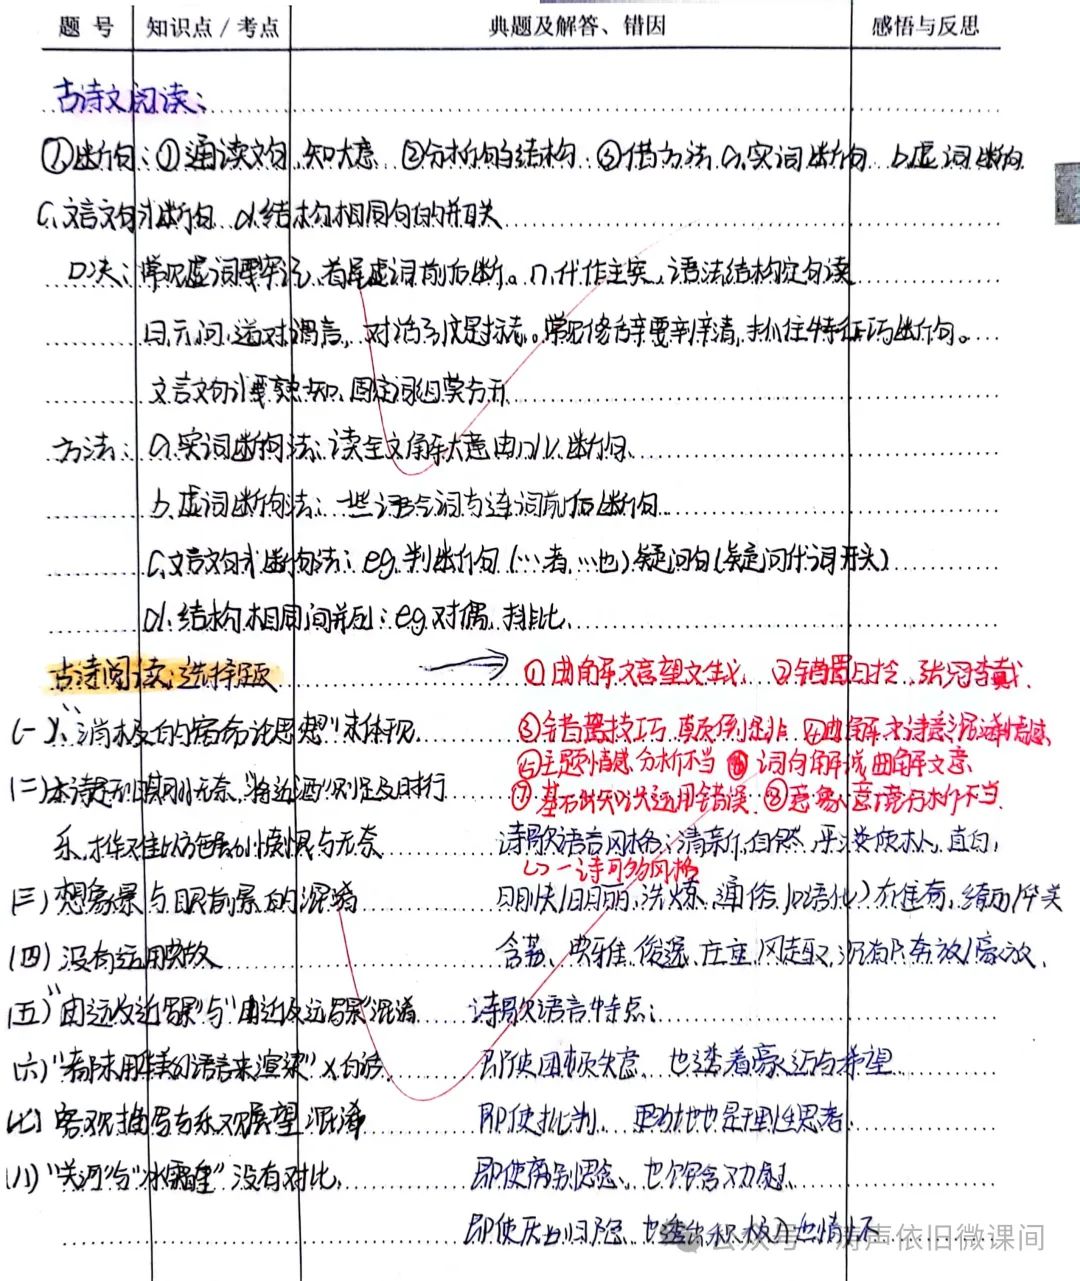 题 号 知识点/考点 典题及解答、错因 感悟与反思
古诗文阅读:
①断句:①通读文句,知大意 ②分析句的结构 ③借方法 a,实词断句 b.虚词断句
C、文言文句式断句 d.结构相同句的并列关
口决:常见虚词要牢记,首尾虚词前后断。n.代作主宾,语法结构定句读
曰云问道对谓言,对话引文是标志。常见修辞要辨清,抓住特征巧断句。
文言文句式要熟知,固定词组莫分开
方法:a.实词断句法:读全文解大意 断句、
b、虚词断句法:一些语令词与连词前后断句
C,文言文句式断句法:eg.判断句(…者,…也)疑问句(疑问代词开头)
d.结构相同间并列:eg.对偶,排比、
古诗阅读:选择题 → ①曲解文言望文生义、②错置日拾,张冠李戴、
(一)、"消极的宿命论思想"未体现、 ③错置技巧,颠倒是非 ④曲解 诗意混淆情感、
⑤主题情感分析不当 ⑥词句解说,曲解文意
(二)本诗无 无奈,"将近酒"别性及时行 ⑦基础知识运用错误、⑧意象、意境分析不当
乐, 与无奈 诗歌语言风格:清新、自然、平淡质朴、直白、
↳一诗可多风格
(三)想象景与眼前景的混淆 明快/明丽,洗炼,通俗(口语化)
(四)没有运用典故 含蓄、典雅、俊逸、庄重、风趣、沉郁、奔放/豪放、
(五)"由远及近写景"与"由近及远写景"混淆 诗歌语言特点:
(六)"末用华美的语言来渲染"×白话、 即使困顿失意、也透着豪迈与希望
(七)客观描写与乐观展望混淆 即使批判、更多地也是理性思考、
(八)"关河"与"冰霜重"没有对比、 即使离别思念、也饱含 感、
即使 归隐 也透出积极 情怀
公众号·涛声依旧微课间